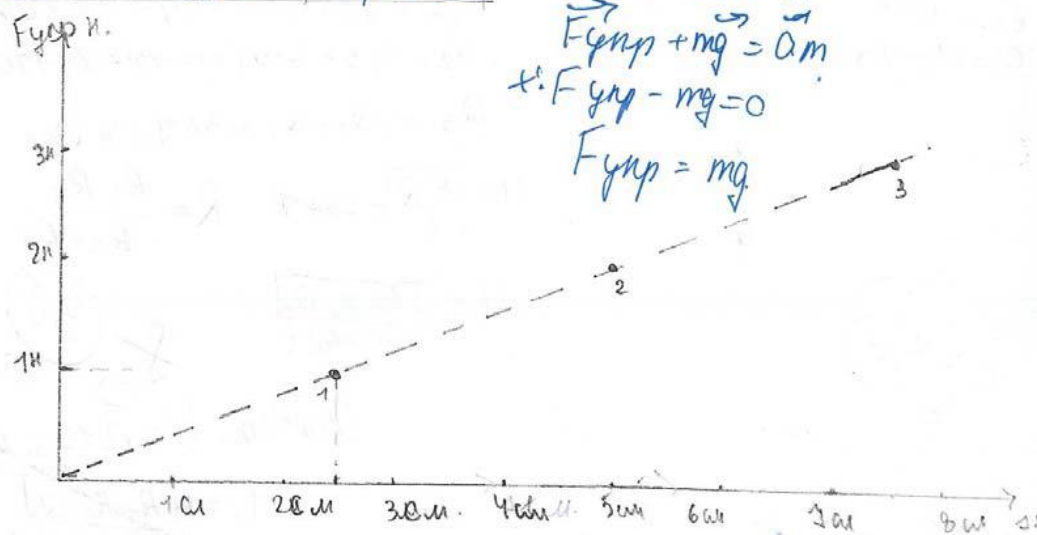 Fупр н.
Fупр + mg = am
x: Fупр - mg = 0
Fупр = mg
3н
2н
1н
1
2
3
1см
2см
3см.
4см
5см
6см
7см
8см